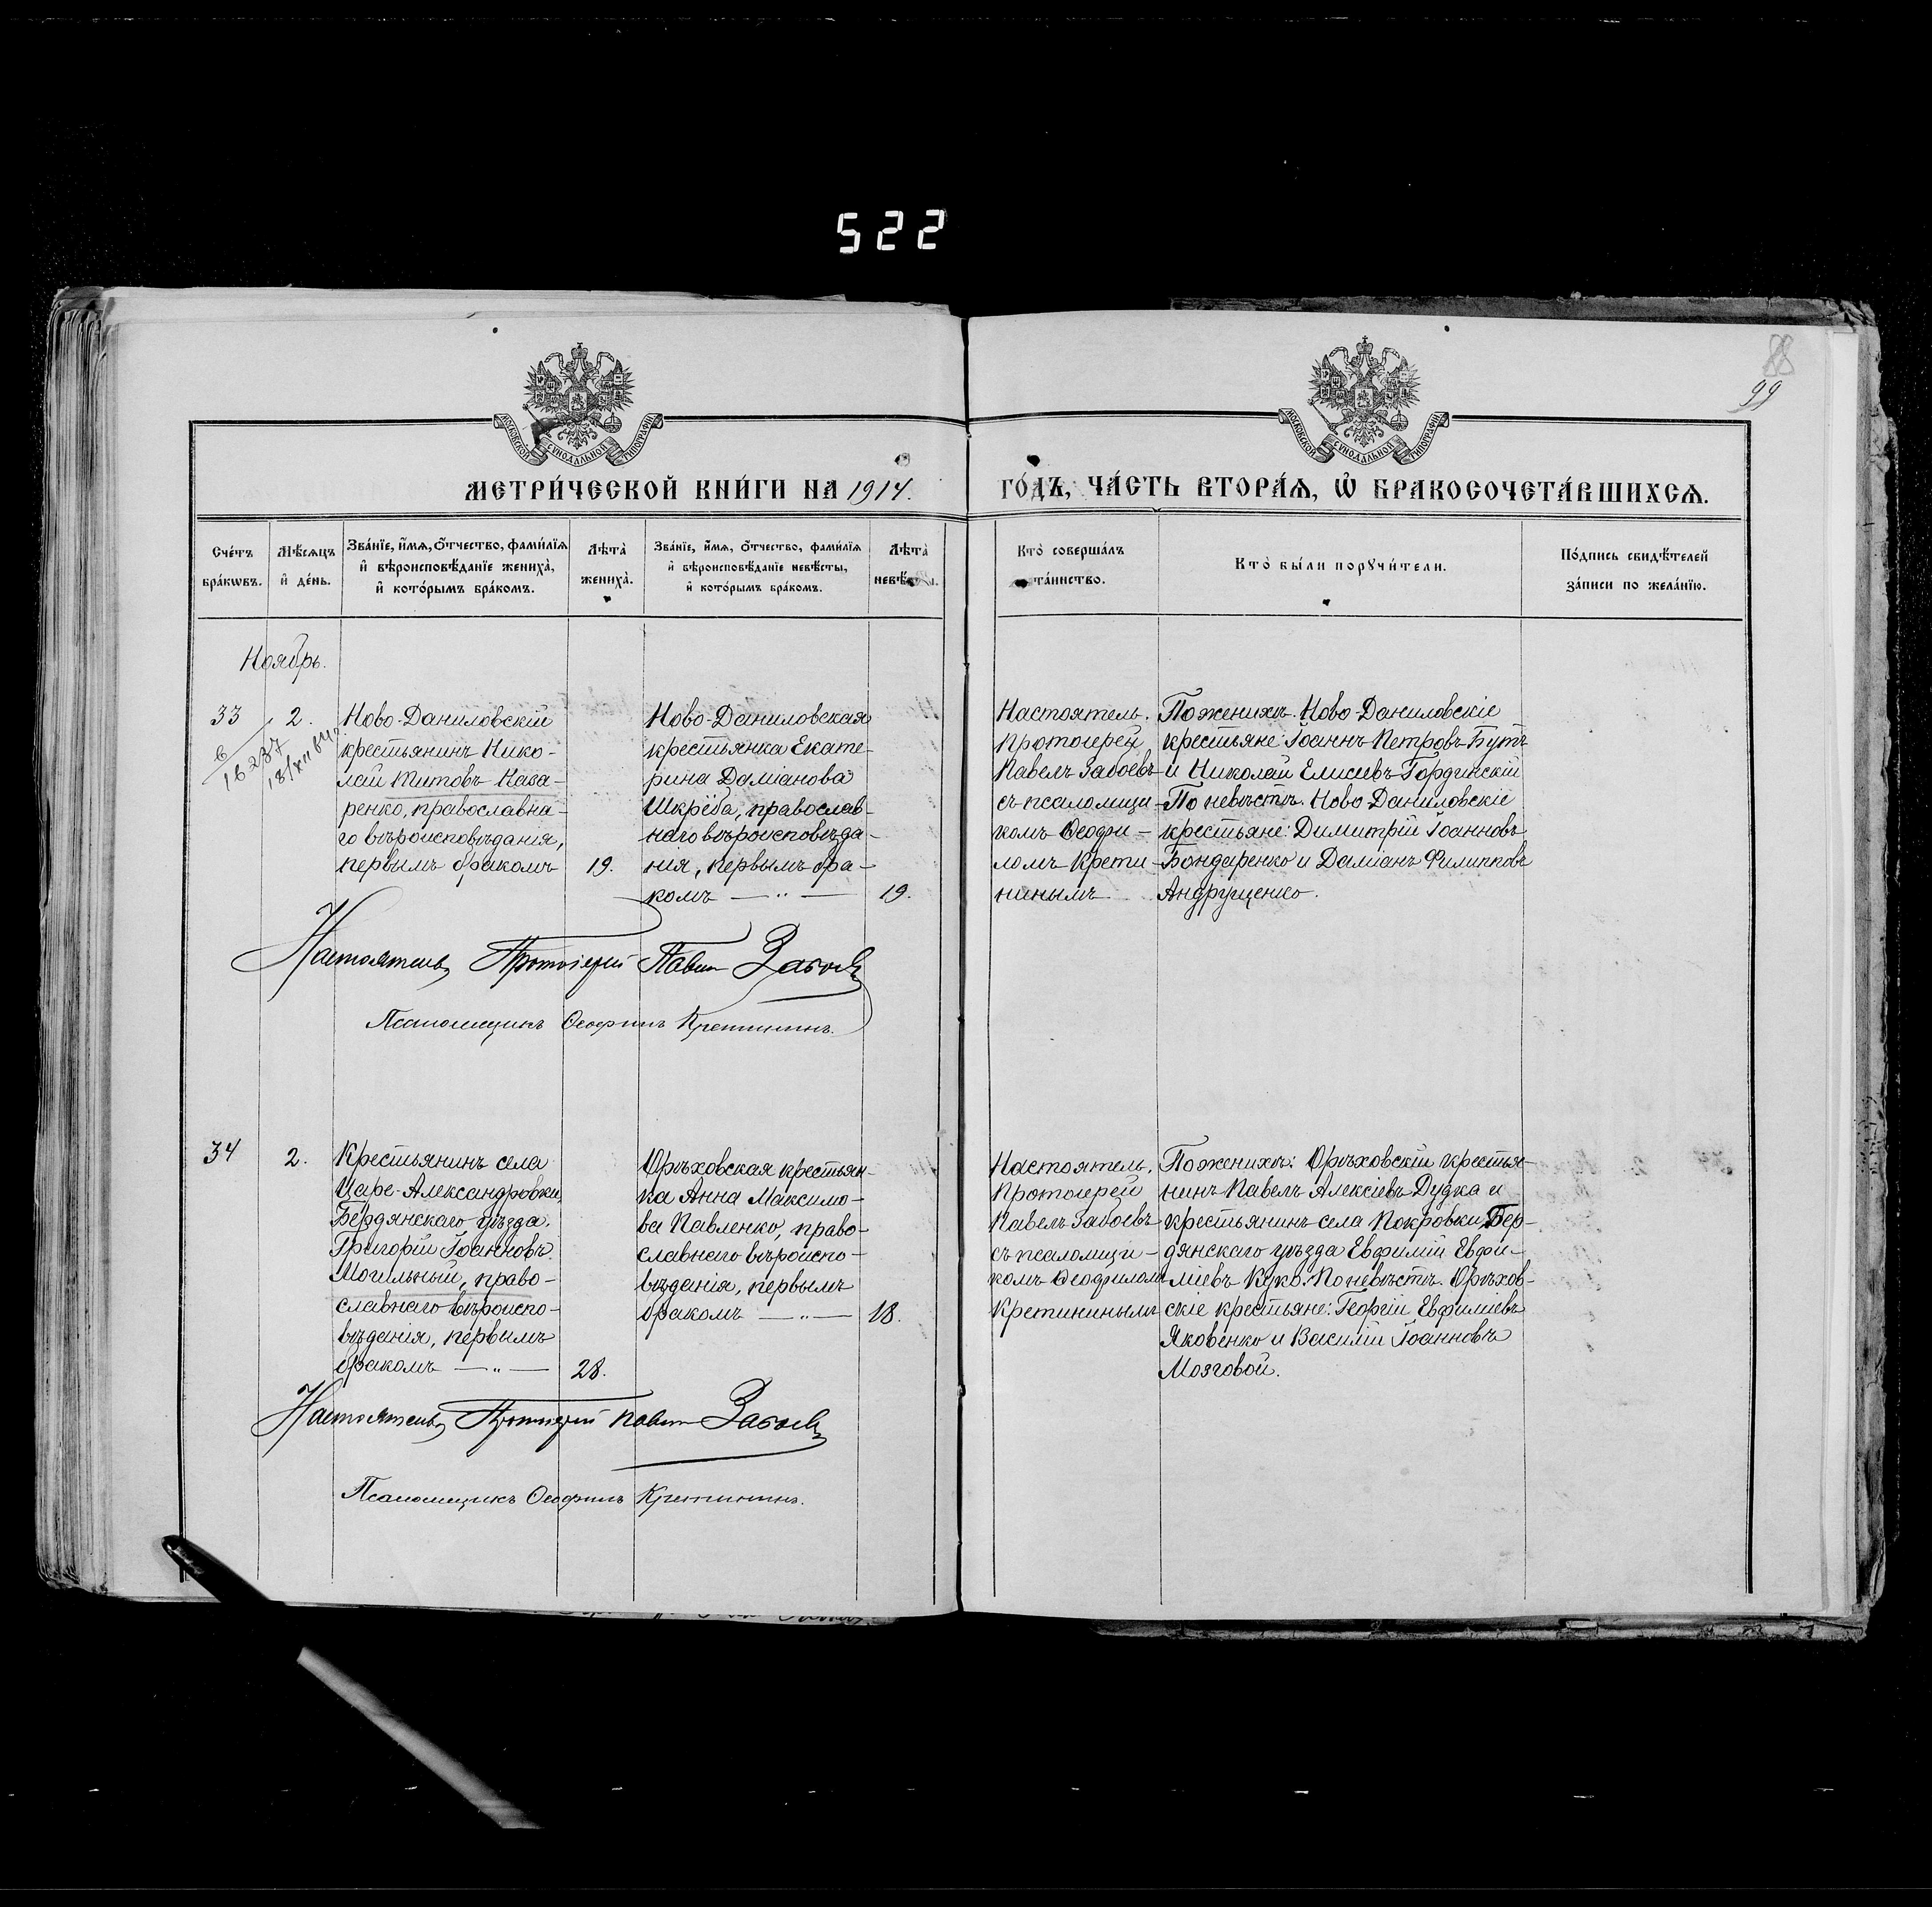 522
88
99
МОСКОВСКОЙ СѴНОДАЛЬНОЙ ТИПОГРАФІИ
МОСКОВСКОЙ СѴНОДАЛЬНОЙ ТИПОГРАФІИ
МЕТРИ́ЧЕСКОЙ КНИ́ГИ НА 1914.
ГО́ДЪ, ЧА́СТЬ ВТОРА́Ѧ, Ѡ҆ БРАКОСОЧЕТА́ВШИХСѦ.
Сче́тъ
бра́кѡвъ.
Мѣ́сѧцъ
и҆ де́нь.
Зва́нїе, и҆́мѧ, ѻ҆́тчество, фами́лїѧ
и҆ вѣроисповѣ́данїе жениха̀,
и҆ кото́рымъ бра́комъ.
Лѣта̀
жениха̀.
Зва́нїе, и҆́мѧ, ѻ҆́тчество, фами́лїѧ
и҆ вѣроисповѣ́данїе невѣ́сты,
и҆ кото́рымъ бра́комъ.
Лѣта̀
невѣ́сты.
Кто̀ соверша́лъ
та́инство.
Кто̀ бы́ли порꙋчи́тели.
По́дпись свидѣ́телей
за́писи по жела́нїю.
Ноябрь.
33
2.
6
16237
18/XII 64
Ново-Даниловскій
крестьянинъ Нико-
лай Титовъ Наза-
ренко, православна-
го вѣроисповѣданія,
первымъ бракомъ
19.
Ново-Даниловская
крестьянка Екате-
рина Даміанова
Шкрёба, православ-
наго вѣроисповѣда-
нія, первымъ бра-
комъ — „ —
19.
Настоятель.
Протоіерей
Павелъ Забоевъ
съ псаломщи-
комъ Ѳеофи-
ломъ Крети-
нинымъ
По женихѣ. Ново-Даниловскіе
крестьяне: Іоаннъ Петровъ Бутъ
и Николай Елисеевъ Гординскій
По невѣстѣ. Ново-Даниловскіе
крестьяне: Димитрій Іоанновъ
Бондаренко и Даміанъ Филипповъ
Андрущенко.
Настоятель, Протоіерей Павелъ Забоевъ
Псаломщикъ Ѳеофилъ Кретининъ.
34
2.
Крестьянинъ села
Царе-Александровки,
Бердянскаго уѣзда,
Григорій Іоанновъ
Могильный, право-
славнаго вѣроиспо-
вѣданія, первымъ
бракомъ — „ —
28.
Орѣховская крестьян-
ка Анна Максимо-
ва Павленко, право-
славнаго вѣроиспо-
вѣданія, первымъ
бракомъ — „ —
18.
Настоятель.
Протоіерей
Павелъ Забоевъ
съ псаломщи-
комъ Ѳеофиломъ
Кретининымъ
По женихѣ: Орѣховскій крестья-
нинъ Павелъ Алексіевъ Дудка и
крестьянинъ села Покровки, Бер-
дянскаго уѣзда Евфимій Евфи-
міевъ Куко. По невѣстѣ. Орѣхов-
скіе крестьяне: Георгій Евфиміевъ
Яковенко и Василій Іоанновъ
Мозговой.
Настоятель, Протоіерей Павелъ Забоевъ
Псаломщикъ Ѳеофилъ Кретининъ.